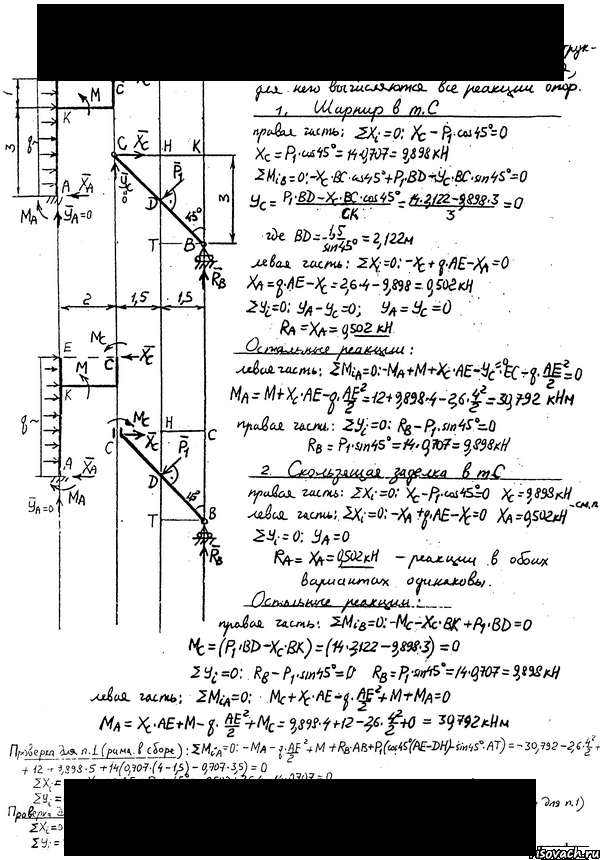 для него вычисляются все реакции опор.
1. Шарнир в т.С
правая часть: ΣXi=0: Xc-P1·cos45°=0
Xc=P1·cos45°=14·0,707=9,898кН
ΣMiB=0:-Xc·BC·cos45°+P1·BD-Yc·BC·sin45°=0
Yc=P1·BD-Xc·BC·cos45°/CK=14·2,122-9,898·3/3=0
где BD=1,5/sin45°=2,122м
левая часть: ΣXi=0:-Xc+q·AE-XA=0
XA=q·AE-Xc=2,6·4-9,898=0,502кН
ΣYi=0: YA-Yc=0; YA=Yc=0
RA=XA=0,502кН
Остальные реакции:
левая часть: ΣMiA=0:-MA+M+Xc·AE-Yc·EC-q·AE²/2=0
MA=M+Xc·AE-q·AE²/2=12+9,898·4-2,6·4²/2=30,792 кНм
правая часть: ΣYi=0: RB-P1·sin45°=0
RB=P1·sin45°=14·0,707=9,898кН
2. Скользящая заделка в т.С
правая часть: ΣXi=0: Xc-P1·cos45°=0 Xc=9,898кН
левая часть: ΣXi=0: -XA+q·AE-Xc=0 XA=0,502кН -см.п
ΣYi=0: YA=0
RA=XA=0,502кН - реакции в обоих
вариантах одинаковы.
Остальные реакции:
правая часть: ΣMiB=0:-Mc-Xc·BK+P1·BD=0
Mc=(P1·BD-Xc·BK)=(14·2,122-9,898·3)=0
ΣYi=0: RB-P1·sin45°=0 RB=P1·sin45°=14·0,707=9,898кН
левая часть: ΣMiA=0: Mc+Xc·AE-q·AE²/2+M+MA=0
MA=Xc·AE+M-q·AE²/2+Mc=9,898·4+12-2,6·4²/2+0=30,792кНм
Проверка для п.1 (рама в сборе): ΣMiA=0: -MA-q·AE²/2+M+RB·AB+P1(cos45°(AE-DH)-sin45°·AT)=-30,792-2,6·4²/2+
+12+9,898·5+14(0,707·(4-1,5)-0,707·3,5)=0
ΣXi=
ΣYi=
для п.1)
Проверка
ΣXi=0
ΣYi=
1
3
q
M
K
C
A
XA
MA
YA=0
C
Xc
H
K
Yc
0
P1
D
45°
3
T
B
RB
2
1,5
1,5
Mc
E
C
Xc
M
K
q
A
XA
MA
YA=0
Mc
C
Xc
H
C
P1
D
45°
T
B
RB
Risovach.ru